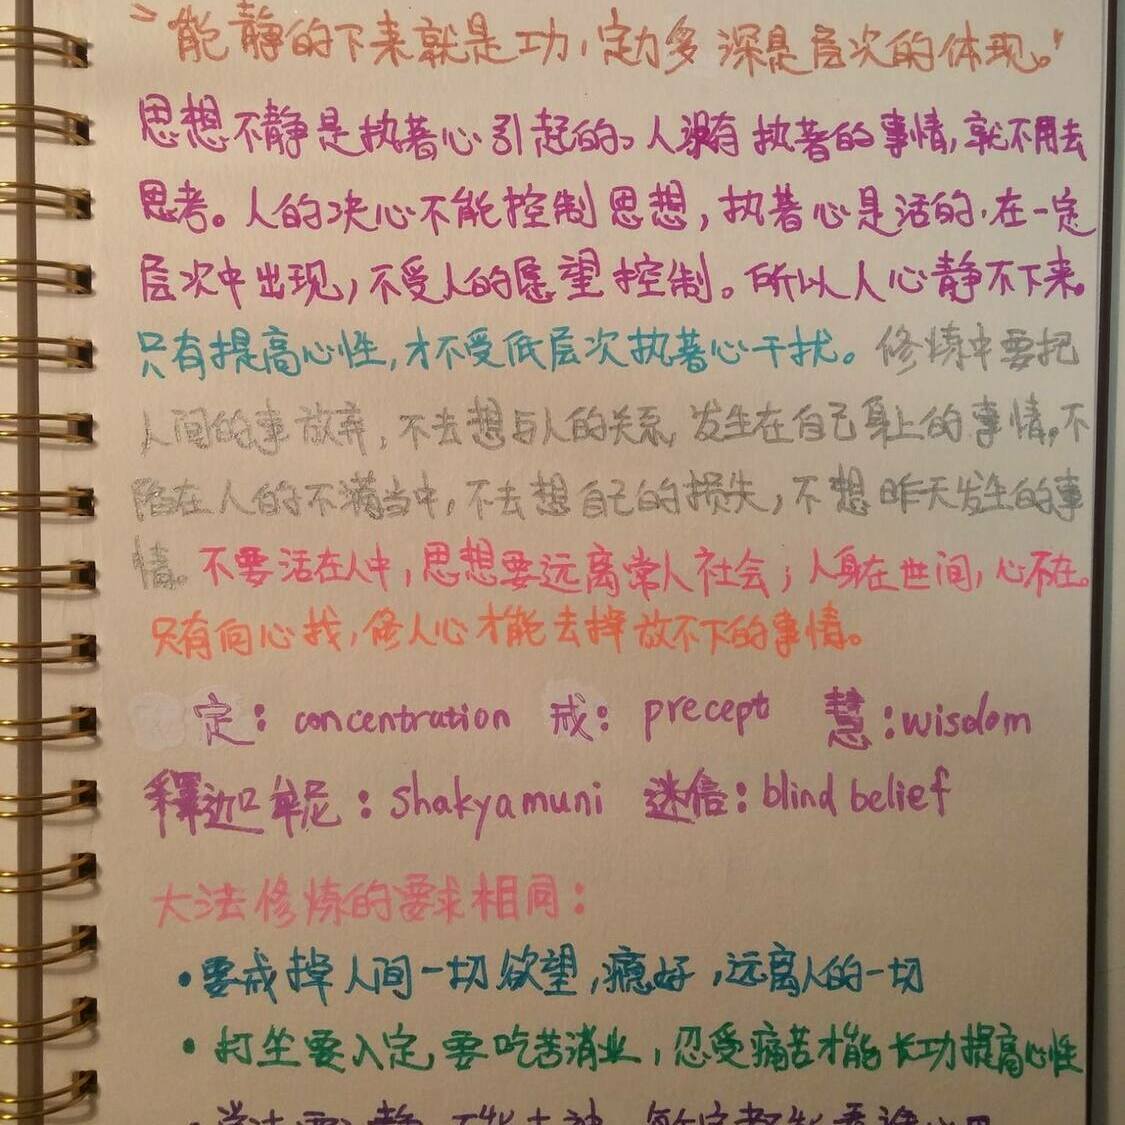 "能静的下来就是功，定力多深是层次的体现。"
思想不静是执著心引起的、人没有执著的事情，就不用去
思考。人的决心不能控制思想，执著心是活的，在一定
层次中出现，不受人的愿望控制。所以人心静不下来。
只有提高心性，才不受低层次执著心干扰。修炼中要把
人间的事放弃，不去想与人的关系，发生在自己身上的事情。不
陷在人的不满当中，不去想自己的损失，不想昨天发生的事
情。不要活在人中，思想要远离常人社会；人身在世间，心不在。
只有向心找，修人心才能去掉放不下的事情。
定：concentration 戒：precept 慧：wisdom
釋迦牟尼：shakyamuni 迷信：blind belief
大法修炼的要求相同：
•要戒掉人间一切欲望，瘾好，远离人的一切
•打坐要入定，要吃苦消业，忍受痛苦才能长功提高心性